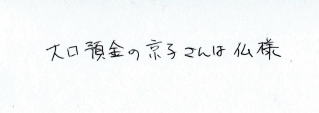 大口預金の京子さんは仏様